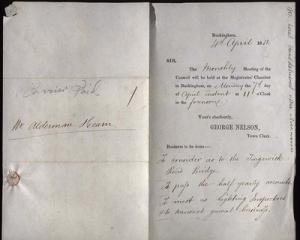 Buckingham,
4th April
SIR,
The Monthly Meeting of the
Council will be held at the Magistrates' Chamber
in Buckingham, on Monday the 7th day
of April instant at 11 o'Clock
in the forenoon.
Your's obediently,
GEORGE NELSON,
Town Clerk.
Business to be done:—
To consider as to the Tingewick
Road Bridge.
To pass the half yearly accounts.
To meet as Lighting Inspectors
To transact general business.
Mr Alderman Hearn